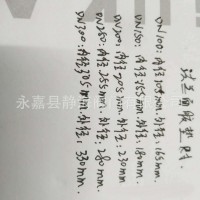 法兰面胶垫尺寸.
DN100: 内径108mm. 外径: 165mm.
DN150: 内径: 155mm. 外径: 180mm.
DN200: 内径: 205mm. 外径: 230mm
DN250: 内径: 255mm. 外径: 280mm.
DN300: 内径: 305mm. 外径: 330mm.
永嘉县静